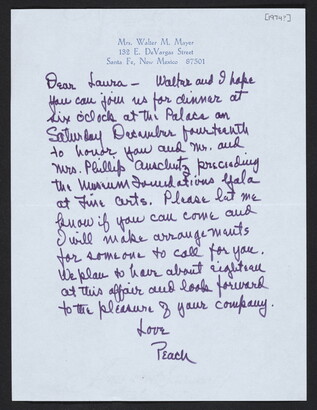 [1974?]
Mrs. Walter M. Mayer
132 E. DeVargas Street
Santa Fe, New Mexico 87501
Dear Laura – Walter and I hope
you can join us for dinner at
six o'clock at the Palace on
Saturday December fourteenth
to honor you and Mr. and
Mrs. Phillip Anschutz preceeding
the Museum Foundations Gala
at Fine Arts. Please let me
know if you can come and
I will make arrangements
for someone to call for you.
We plan to have about eighteen
at this affair and look forward
to the pleasure of your company.
Love
Peach